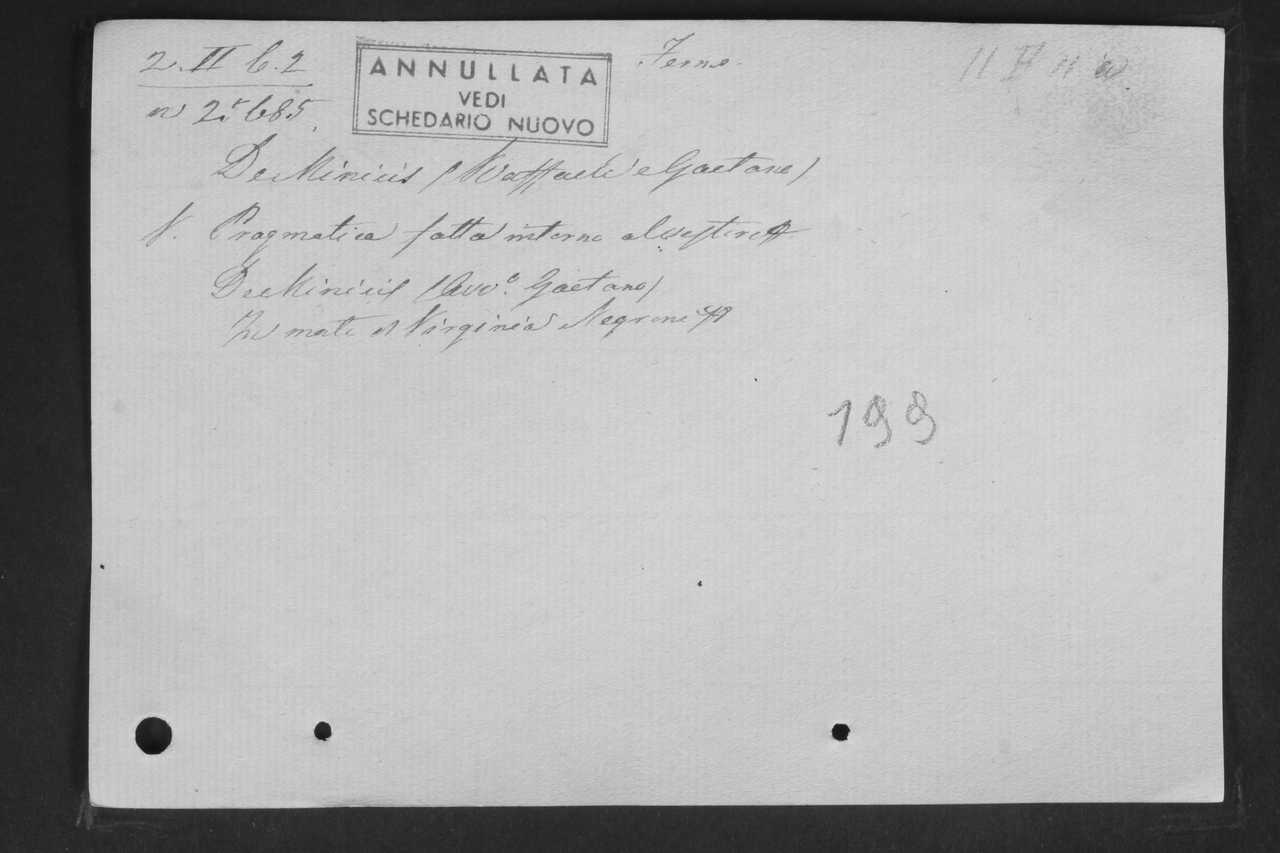 2. II b. 2
n 2.685.
ANNULLATA
VEDI
SCHEDARIO NUOVO
Fermo.
De Minicis (Raffaele e Gaetano)
V. Pragmatica fatta intorno al vestire
De Minicis (Avv.º Gaetano)
Virginia Negroni
199